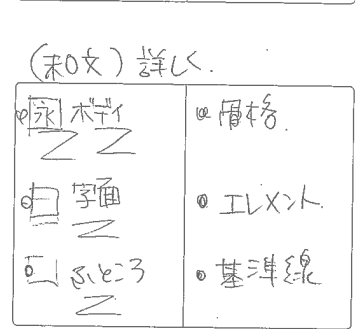 (和文) 詳しく.
永 ボディ
字面
ふところ
骨格.
エレメント.
基準線